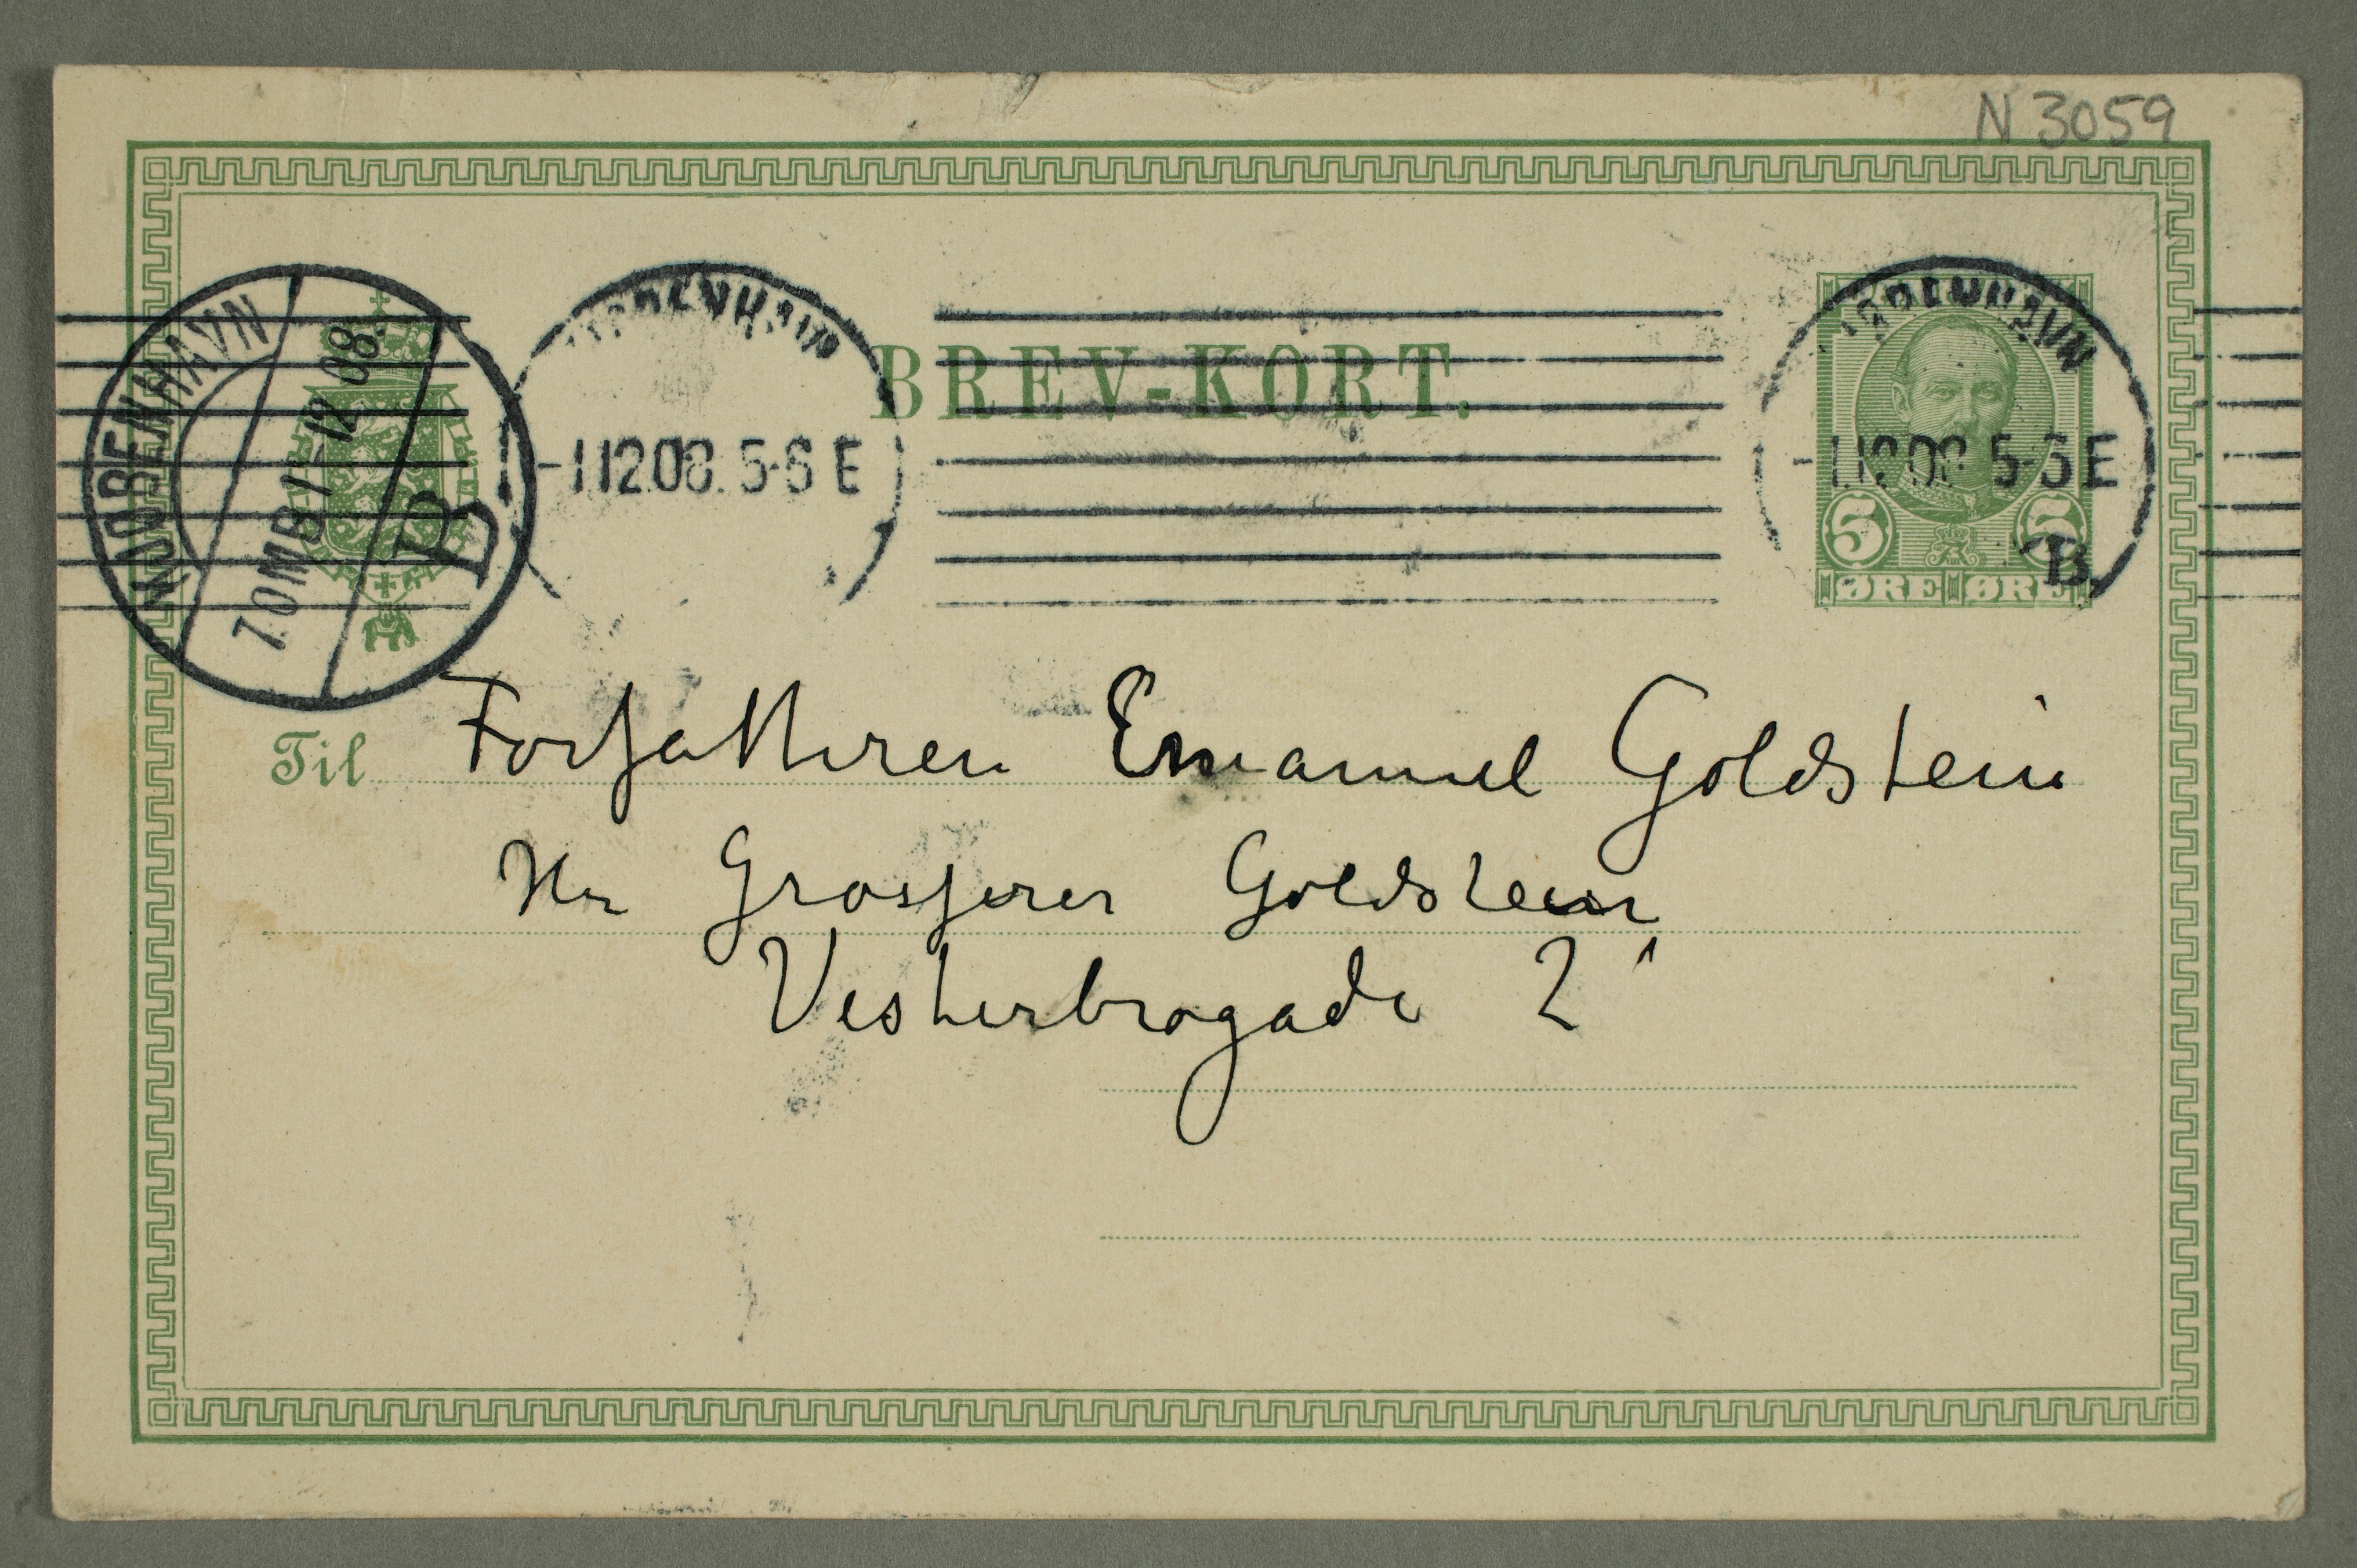 N 3059
BREV-KORT.
KJØBENHAVN
7.OMB 1-12 08.
B
-1.12.08. 5-6 E
KJØBENHAVN
-1.12.08 5-6 E
B.
5 5
ØRE ØRE
Til Forfatteren Emanuel Goldstein
Hr Grosserer Goldstein
Vesterbrogade 2